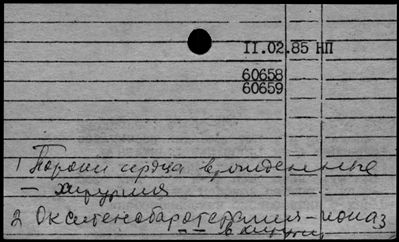 11.02.85 НП
60658
60659
1 Пороки сердца врожденные
— хирургия
2 Оксигенобаротерапия – показ
— — в хирургии